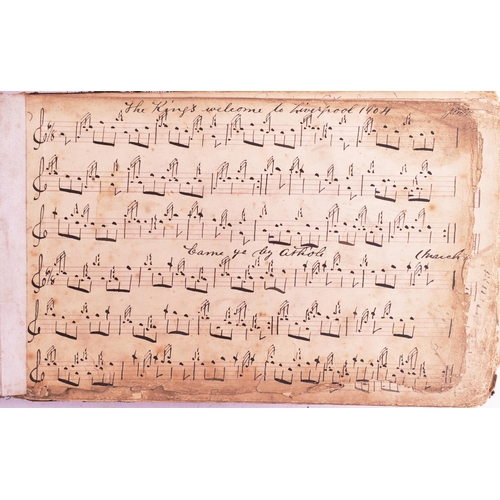 The King's welcome to Liverpool 1904
Came ye by Athole (March